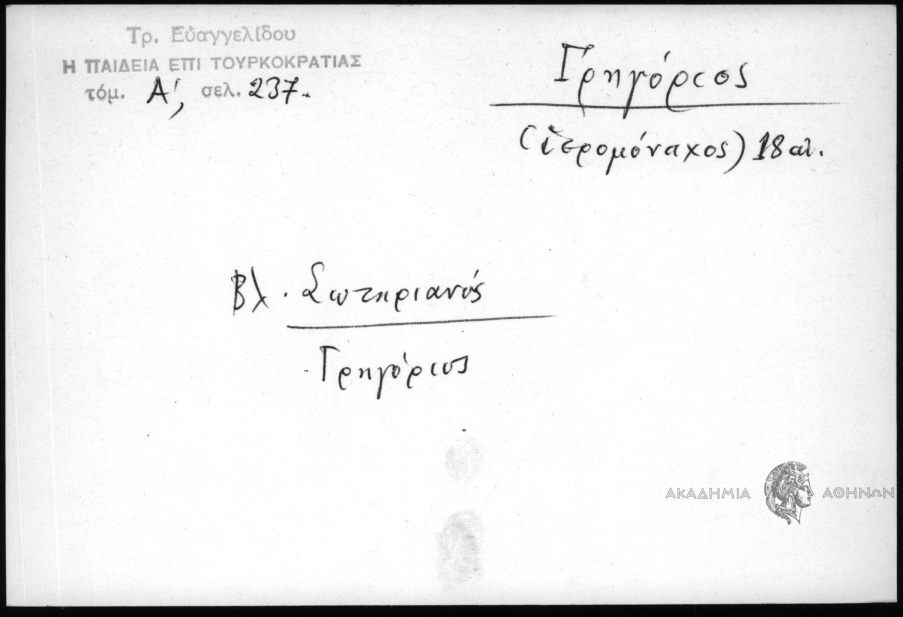 Τρ. Εὐαγγελίδου
Η ΠΑΙΔΕΙΑ ΕΠΙ ΤΟΥΡΚΟΚΡΑΤΙΑΣ
τόμ. Α', σελ. 237.
Γρηγόριος
(ἱερομόναχος) 18 αἰ.
Βλ. Σωτηριανός
Γρηγόριος
ΑΚΑΔΗΜΙΑ ΑΘΗΝΩΝ